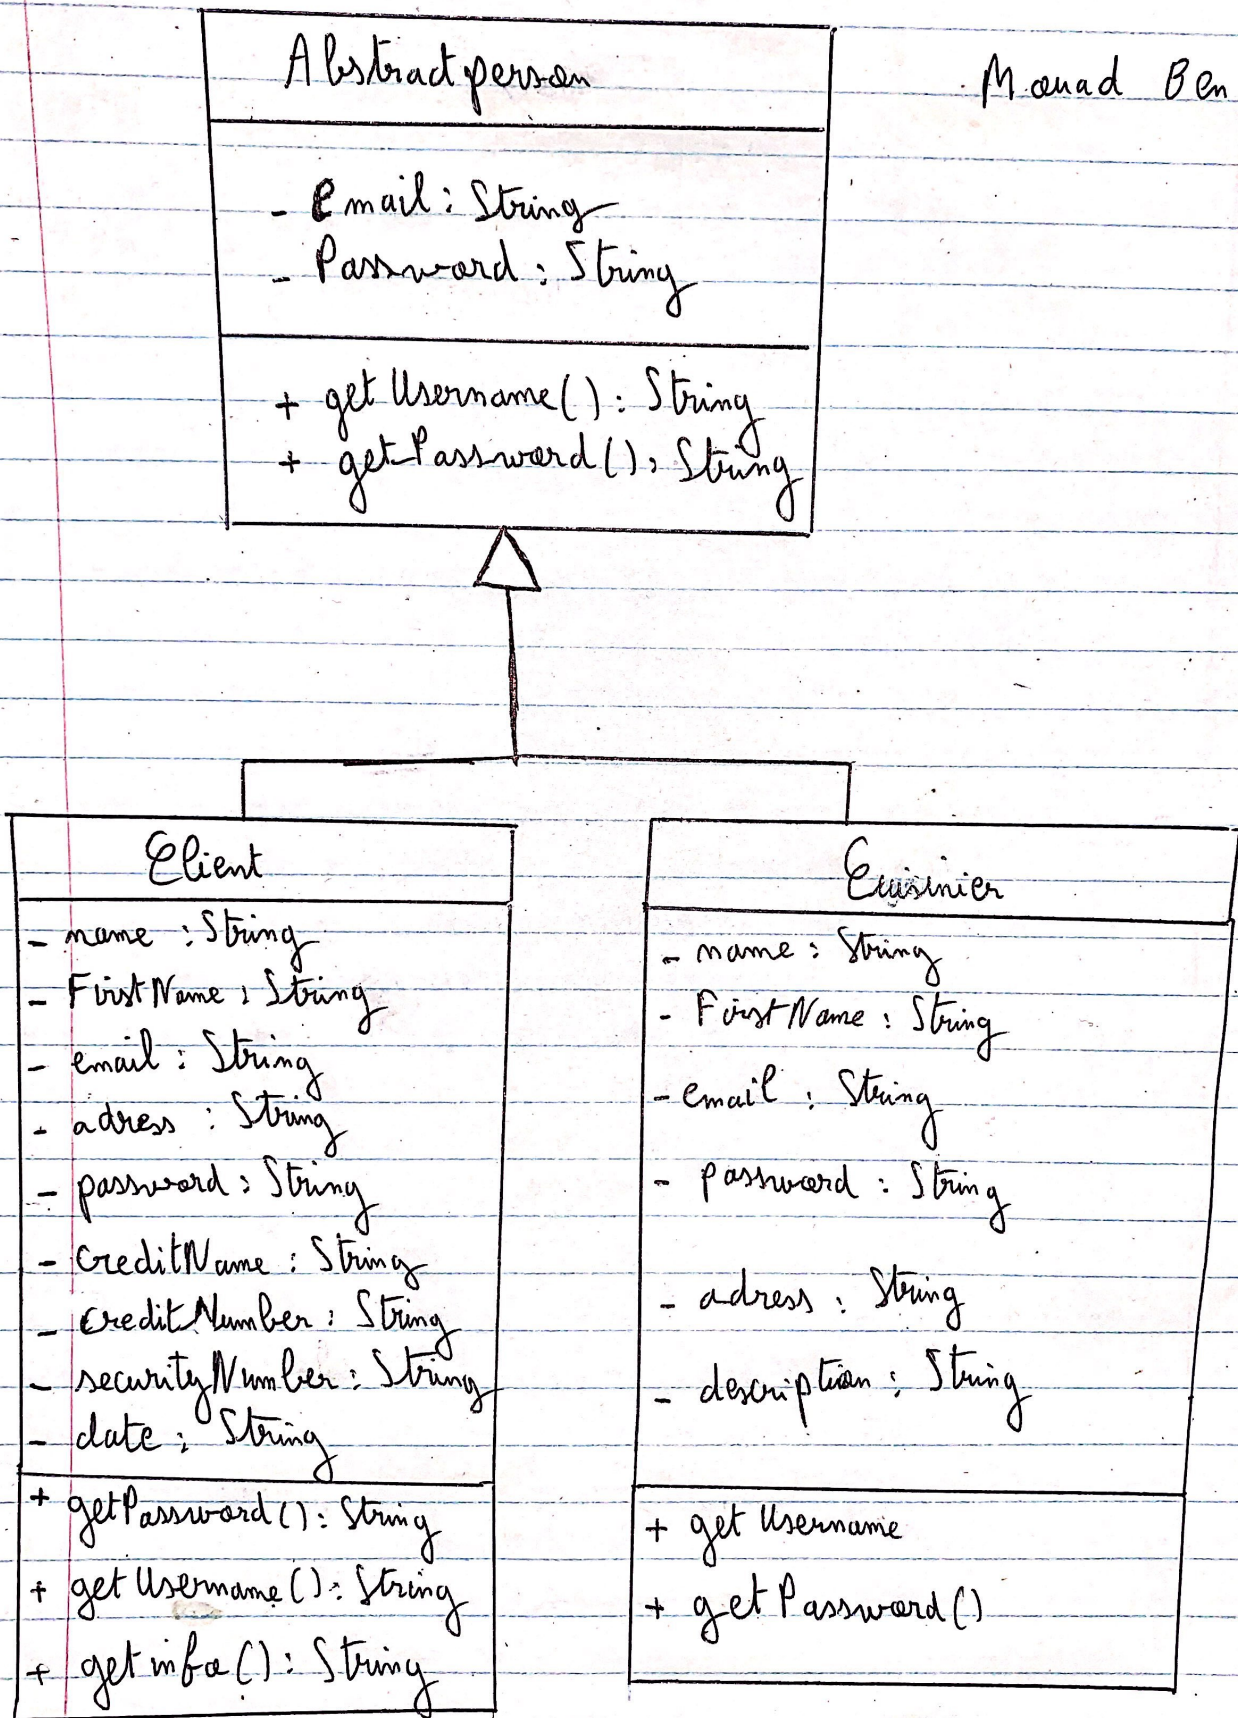 Abstractperson
Mouad Ben
- email : String
- Password : String
+ getUsername() : String
+ getPassword() : String
Client
- name : String
- FirstName : String
- email : String
- adress : String
- password : String
- creditName : String
- creditNumber : String
- securityNumber : String
- date : String
+ getPassword() : String
+ getUsername() : String
+ getinfo() : String
Cuisinier
- name : String
- FirstName : String
- email : String
- password : String
- adress : String
- description : String
+ getUsername
+ getPassword()